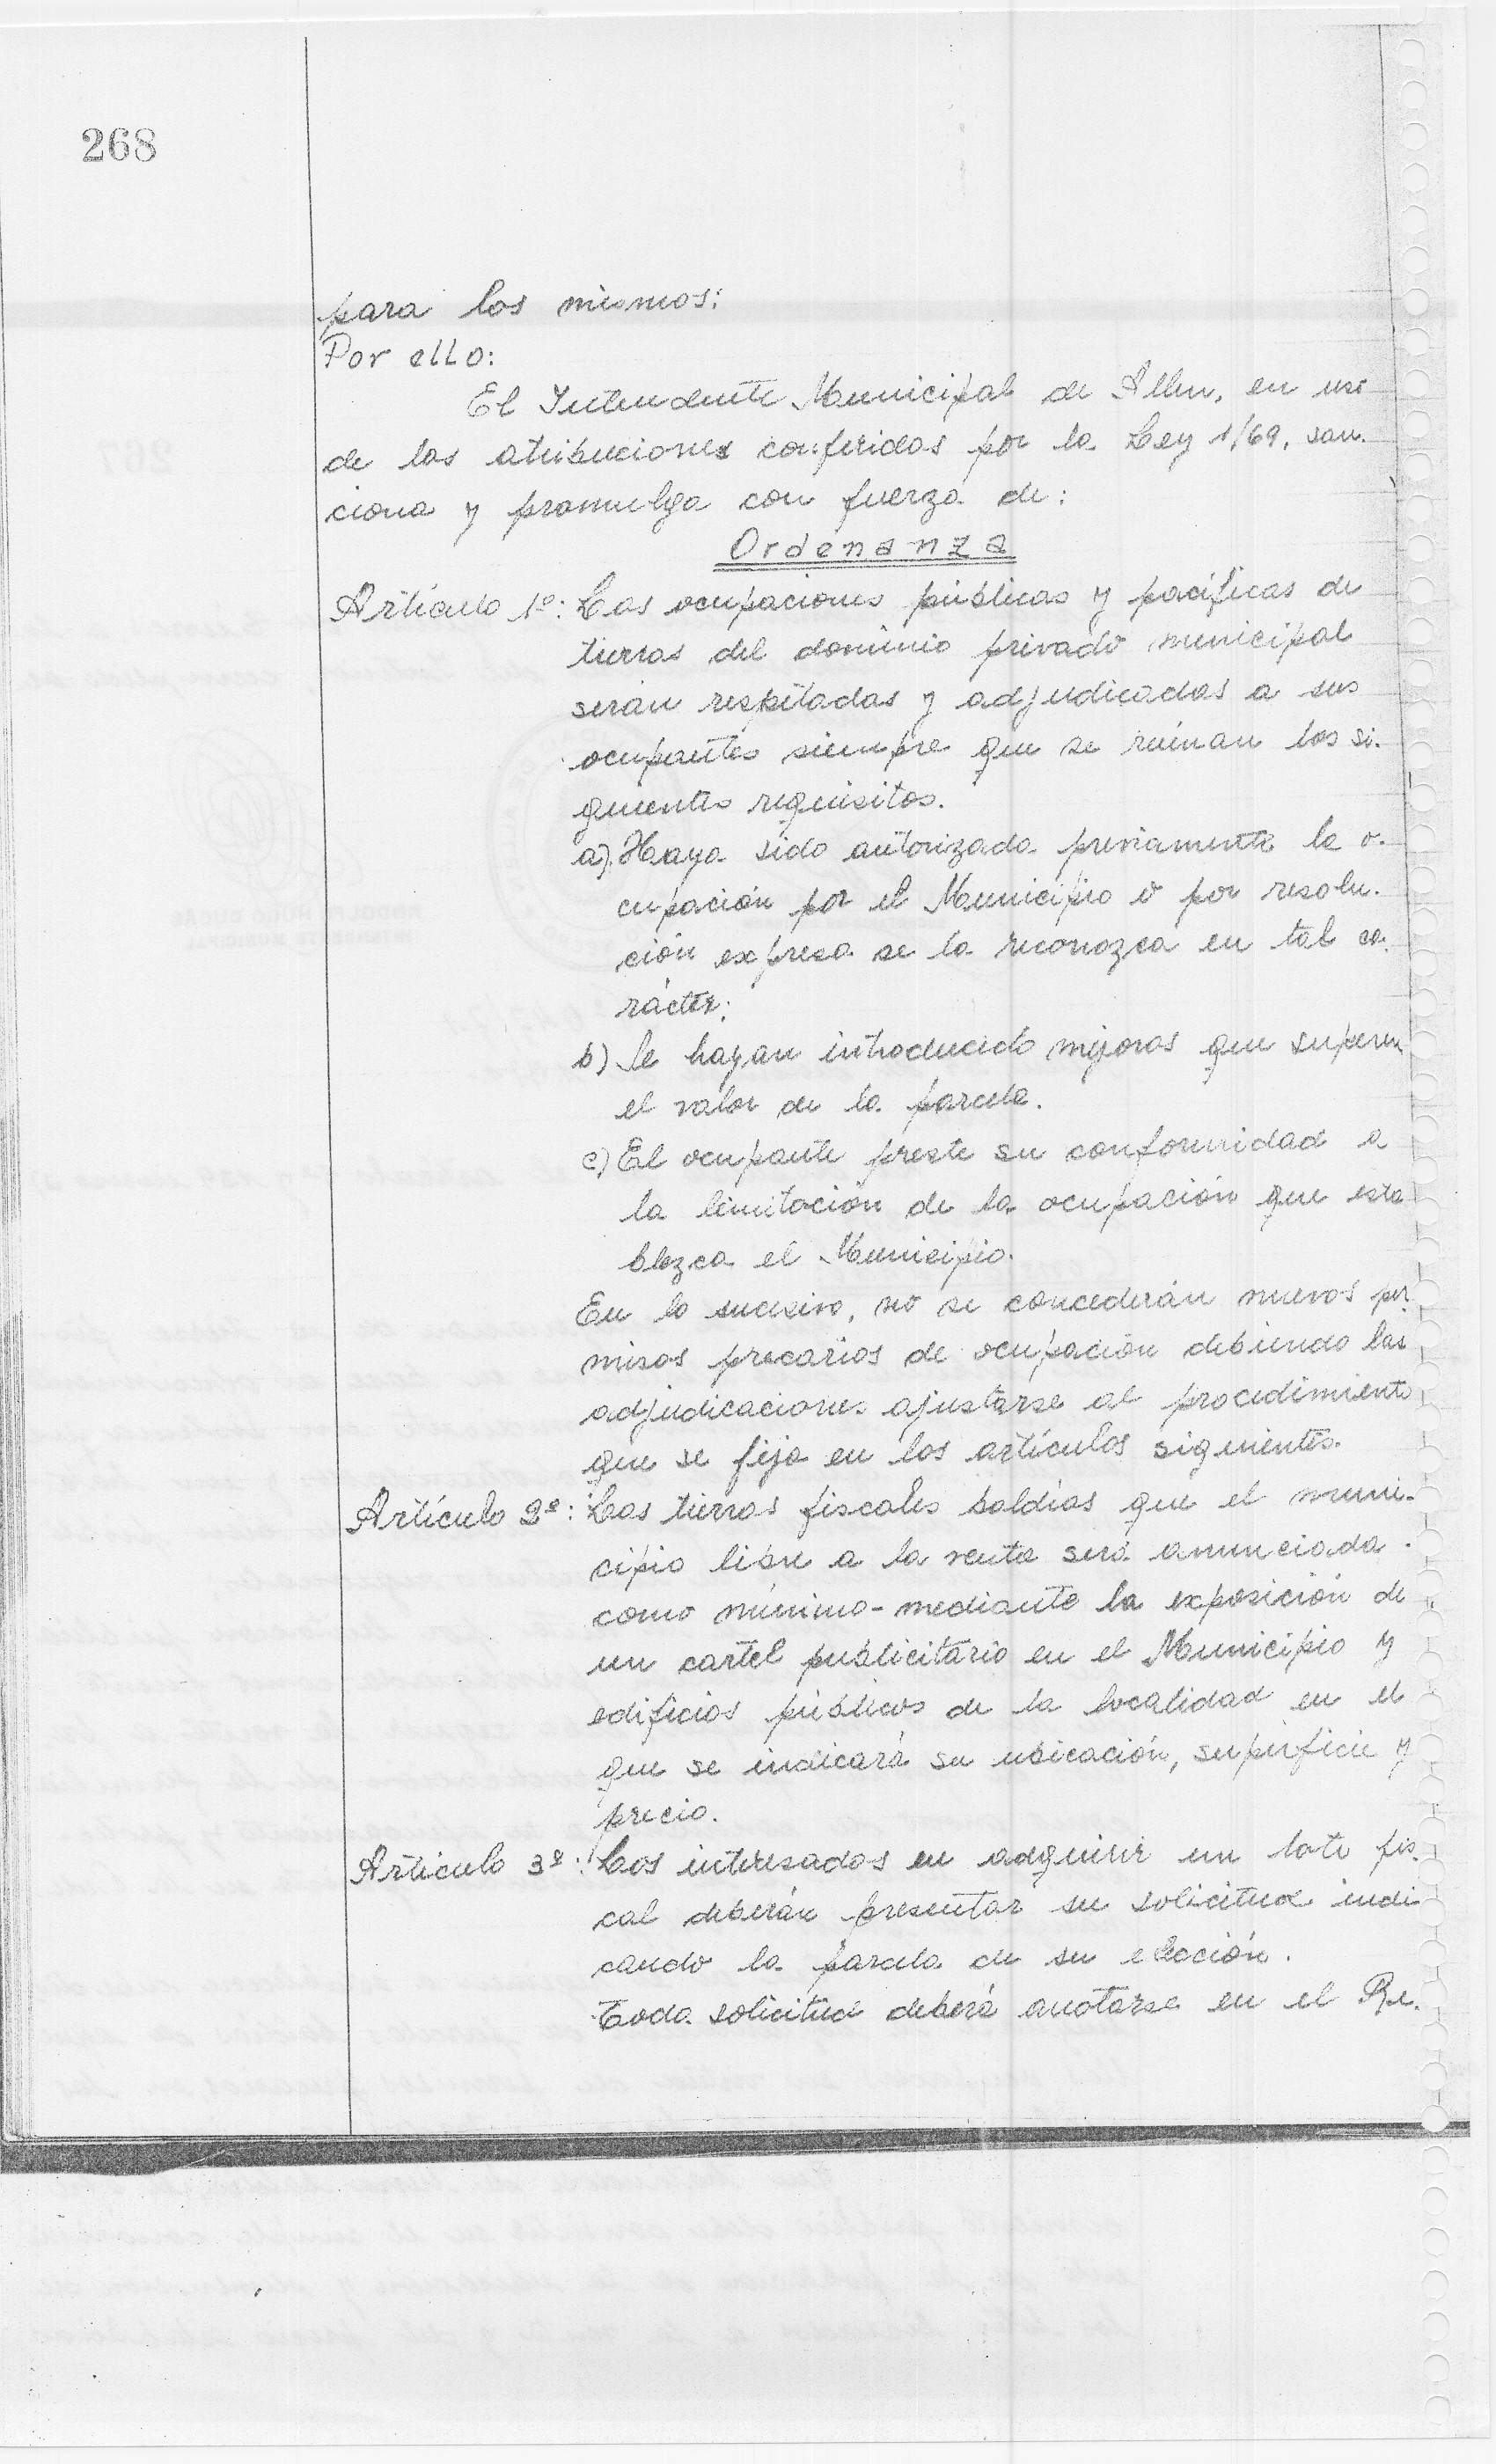 268
para los mismos:
Por ello:
El Intendente Municipal de Allen, en uso
de las atribuciones conferidas por la Ley 1/69, san-
ciona y promulga con fuerza de:
Ordenanza
Artículo 1º: Las ocupaciones públicas y pacíficas de
tierras del dominio privado municipal
serán respetadas y adjudicadas a sus
ocupantes siempre que se reúnan los si-
guientes requisitos.
a) Haya sido autorizada previamente la o-
cupación por el Municipio o por resolu-
ción expresa se la reconozca en tal ca-
rácter;
b) Se hayan introducido mejoras que superen
el valor de la parcela.
c) El ocupante preste su conformidad a
la limitación de la ocupación que esta
blezca el Municipio.
En lo sucesivo, no se concederán nuevos per-
misos precarios de ocupación debiendo las
adjudicaciones ajustarse al procedimiento
que se fija en los artículos siguientes.
Artículo 2º: Las tierras fiscales baldías que el muni-
cipio libre a la venta será anunciada -
como mínimo - mediante la exposición de
un cartel publicitario en el Municipio y
edificios públicos de la localidad en el
que se indicará su ubicación, superficie y
precio.
Artículo 3º: Los interesados en adquirir un lote fis-
cal deberán presentar su solicitud indi
cando la parcela de su elección.
Toda solicitud deberá anotarse en el Re-